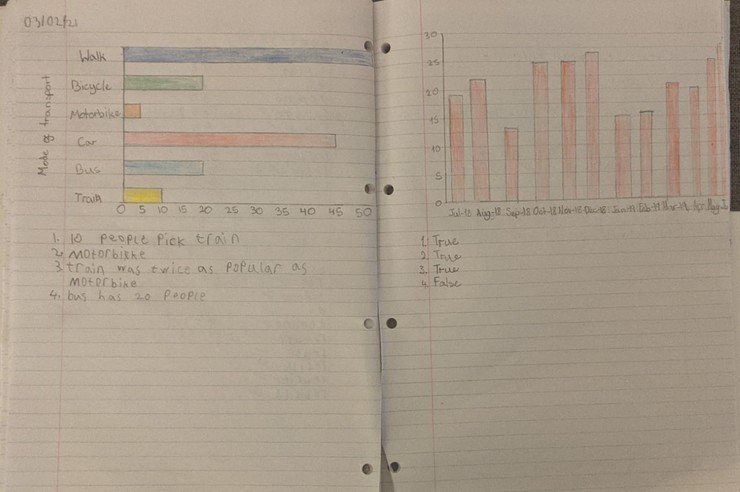 03/02/21
Mode of transport
Walk
Bicycle
Motorbike
Car
Bus
Train
0 5 10 15 20 25 30 35 40 45 50
1. 10 people pick train
2. Motorbike
3. train was twice as popular as
motorbike
4. bus has 20 people
30
25
20
15
10
5
0
Jul-18 Aug-18 Sep-18 Oct-18 Nov-18 Dec-18 Jan-19 Feb-19 Mar-19 Apr May
1. True
2. True
3. True
4. False